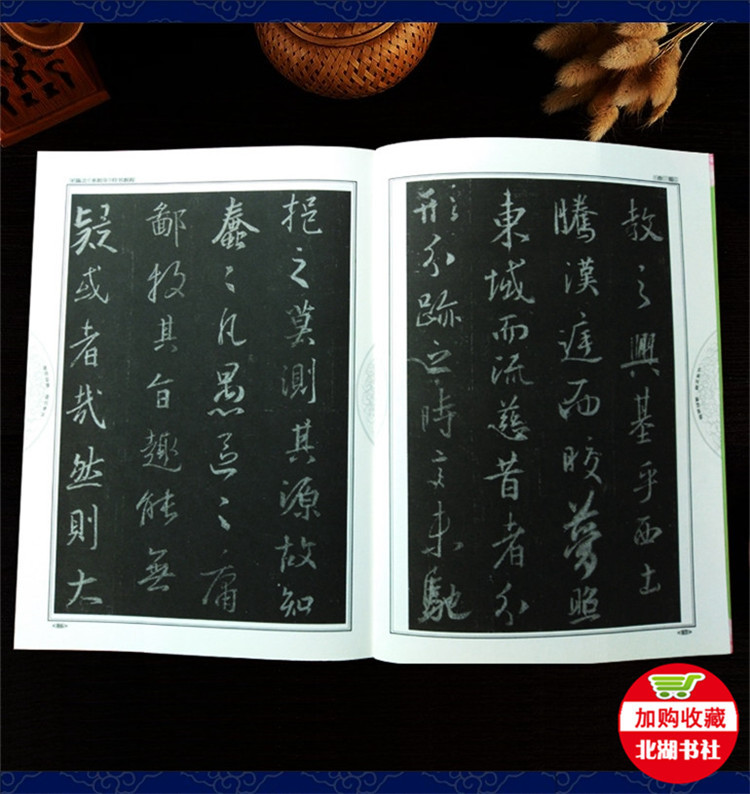 挹之莫測其源故知
蠢〻凡愚區〻庸
鄙投其旨趣能無
疑或者哉然則大
教之興基乎西土
騰漢庭而皎夢照
東域而流慈昔者分
形分跡之時言未馳
加购收藏
北湖书社